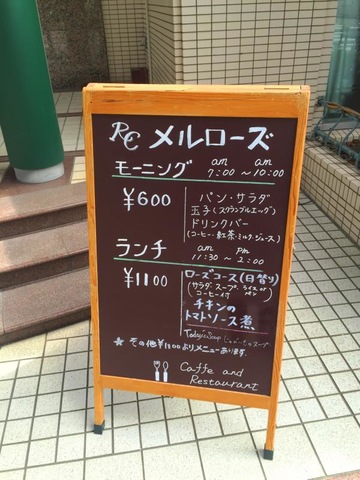 RC メルローズ
モーニング am 7:00 ~ am 10:00
¥600 パン・サラダ
玉子(スクランブルエッグ)
ドリンクバー
(コーヒー・紅茶・ミルク・ジュース)
ランチ am 11:30 ~ pm 2:00
¥1100 ローズコース(日替り)
(サラダ・スープ・ライス or パン
コーヒー付)
チキンの
トマトソース煮
Today's Soup じゃがいものスープ
★ その他¥1100よりメニューあります。
Caffe and
Restaurant